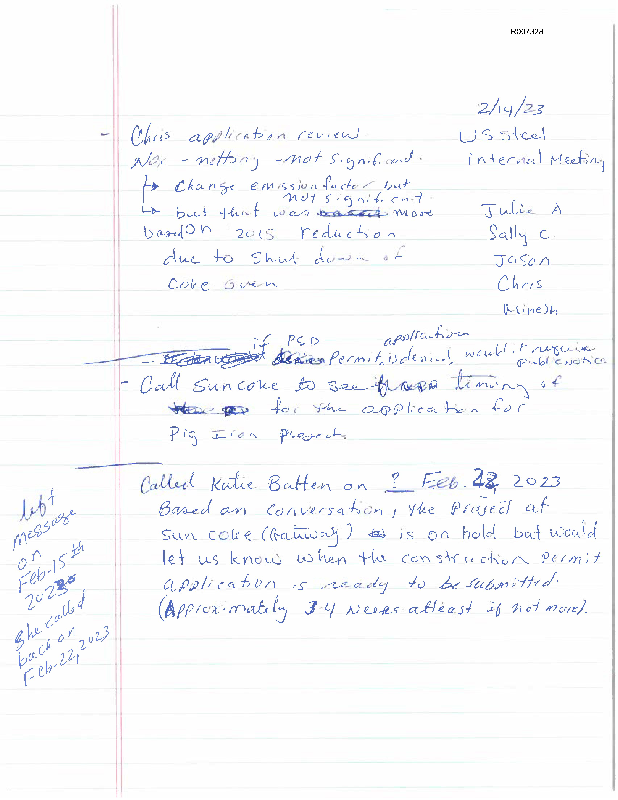 R007324
2/14/23
US Steel
internal Meeting
Julie A
Sally C.
Jason
Chris
Minesh
- Chris application review
- netting - not significant.
↳ Change emission factor but
not significant
↳ but that was more
based on 2015 reduction
due to shut down of
Coke Oven
if PSD application
- Permit is denied would it require
public notice
- Call Suncoke to see timing of
for the application for
Pig Iron Project
Called Katie Batten on ? Feb. 22, 2023
Based on conversation, the project at
Sun coke (Gateway) is on hold but would
let us know when the construction permit
application is ready to be submitted.
(Approximately 3-4 weeks atleast if not more).
left
message
on
Feb-15th
2023
She called
back on
Feb-22, 2023